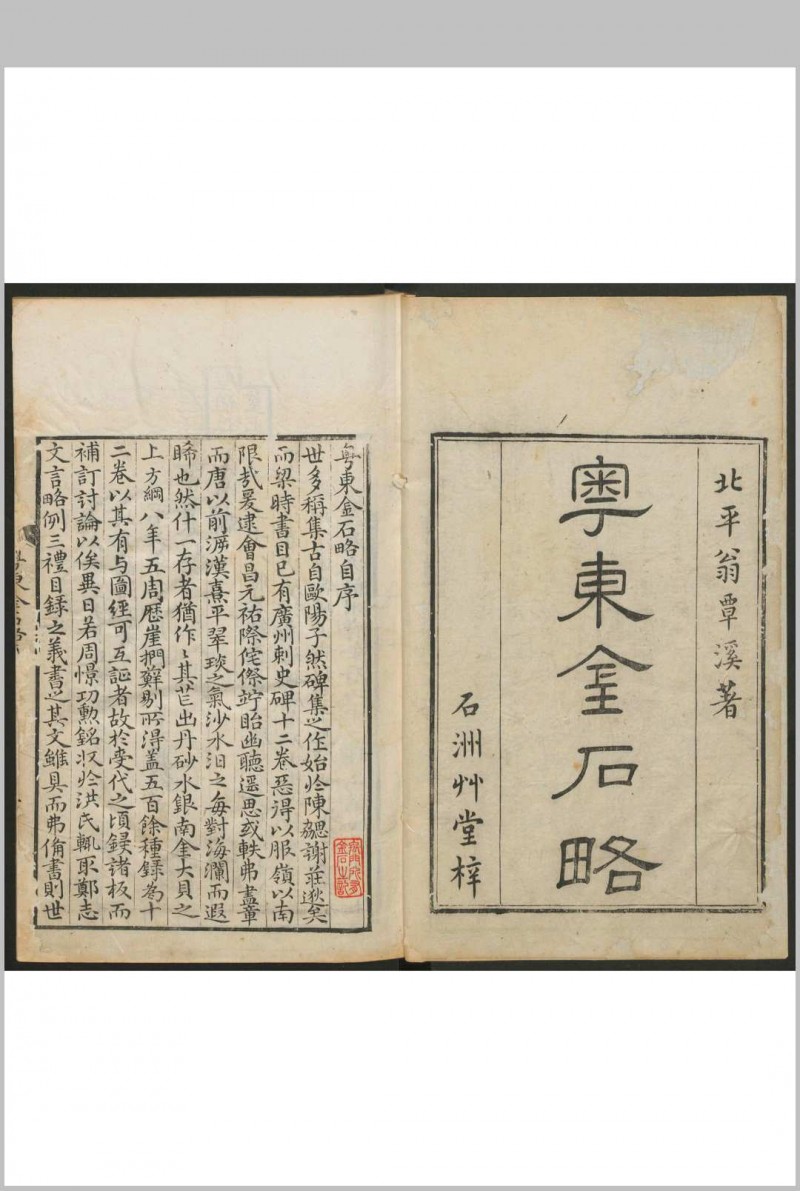 北平翁覃溪著
粵東金石略
石洲艸堂梓
粵東金石略自序
世多稱集古自歐陽子然碑集之作始於陳勰謝莊邈矣
而梁時書目已有廣州刺史碑十二卷惡得以服嶺以南
限哉爰逮會昌元祐際侘傺竚眙幽聽遥思或軼弗盡章
而唐以前漢熹平翠琰之氣沙水汩之每對海瀾而遐
睎也然什一存者猶作作其芒出丹砂水銀南金大貝之
上方綱八年五周歷崖捫蘚剔所得蓋五百餘種錄爲十
二卷以其有与圖經可互証者故於受代之頃録諸板而
補訂討論以俟異日若周憬功勲銘収於洪氏輒取鄭志
文言略例三禮目録之義書之其文雖具而弗備書則世
粵東金石略